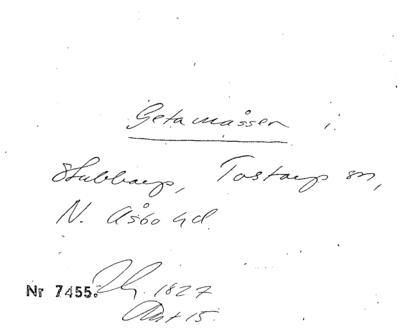 Getamåssen i
Stubbarp, Tostarp sn,
N. Åsbo hd.
Nr 7455. 1827
Akt 15.